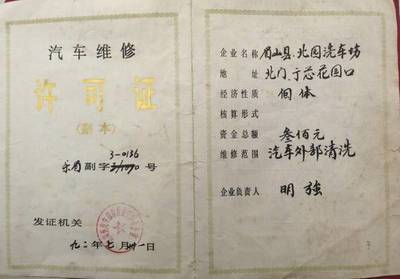 汽车维修
许可证
(副本)
3-0136
乐眉副字 号
发证机关
九二年七月廿一日
企业名称 眉山县北园洗车坊
地址 北门、于芯花园口
经济性质 個体
核算形式
资金总额 叁佰元
维修范围 汽车外部清洗
企业负责人 明强